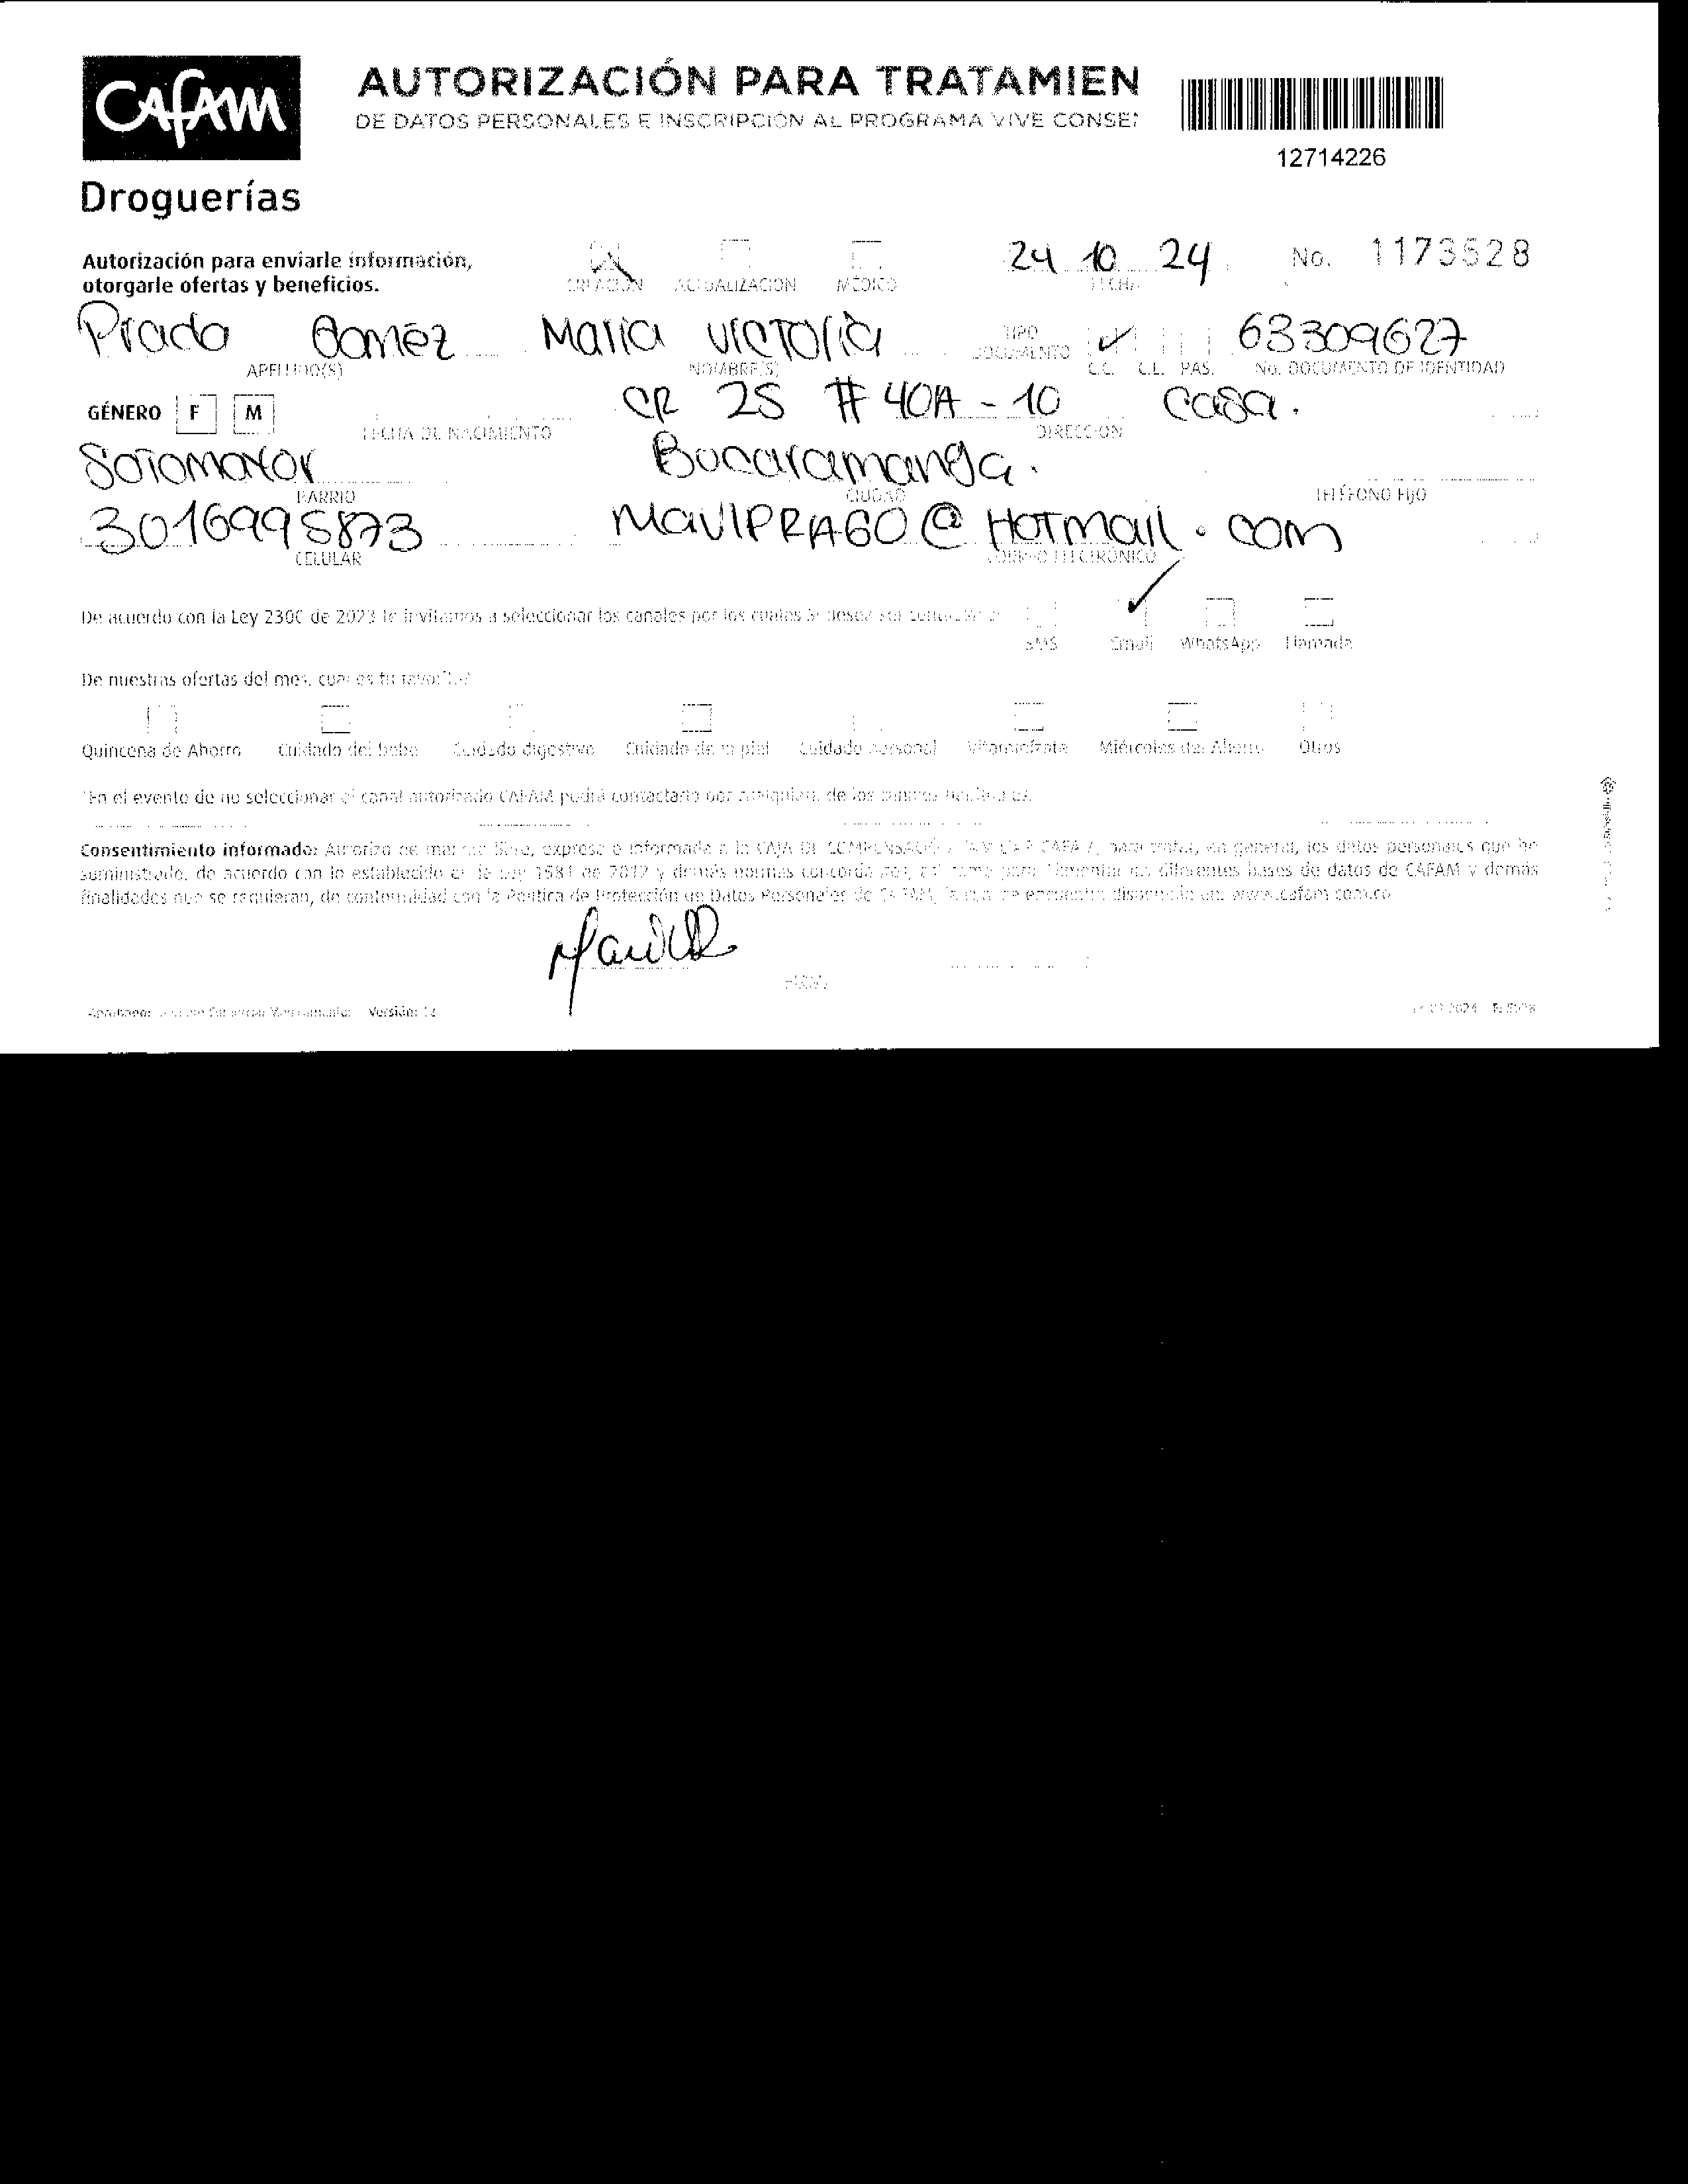 CAFAM
Droguerías
AUTORIZACIÓN PARA TRATAMIEN
DE DATOS PERSONALES E INSCRIPCIÓN AL PROGRAMA VIVE CONSE
12714226
Autorización para enviarle información,
otorgarle ofertas y beneficios.
CREACIÓN ACTUALIZACIÓN MÉDICO
24 10 24
FECHA
No. 1173528
Prada Gomez Maria victoria
APELLIDO(S) NOMBRE(S)
TIPO
DOCUMENTO
C.C. C.E. PAS.
63309627
No. DOCUMENTO DE IDENTIDAD
GÉNERO F M
FECHA DE NACIMIENTO
CR 25 # 40A - 10 casa.
DIRECCIÓN
Sotomayor Bucaramanga.
BARRIO CIUDAD TELÉFONO FIJO
3016995873 MAVIPRAGO@HOTmail.com
CELULAR CORREO ELECTRÓNICO
De acuerdo con la Ley 2300 de 2023 le invitamos a seleccionar los canales por los cuales
SMS Email WhatsApp Llamada
De nuestras ofertas del mes, cual es tu favorita?
Quincena de Ahorro Cuidado del bebe Cuidado digestivo Cuidado de la piel Cuidado personal Miércoles del Ahorro Otros
*En el evento de no seleccionar el canal autorizado CAFAM podrá contactarlo por cualquiera de los
Consentimiento informado: Autorizo de manera libre, expresa e informada a la CAJA DE COMPENSACIÓN FAMILIAR CAFAM, para tratar, en general, los datos personales que he
suministrado, de acuerdo con lo establecido en la Ley 1581 de 2012 y demás normas concordantes, así como para alimentar las diferentes bases de datos de CAFAM y demás
finalidades que se requieran, de conformidad con la Política de Protección de Datos Personales de CAFAM, la cual se encuentra disponible en: www.cafam.com.co
FIRMA
Versión: 12